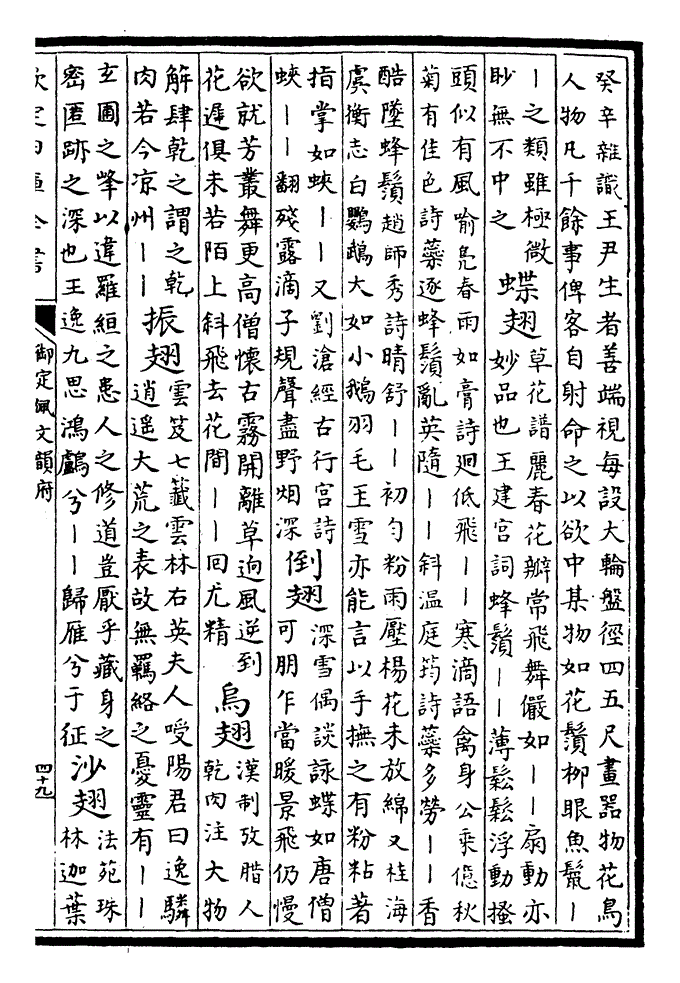 癸辛雜識王尹生者善端視每設大輪盤徑四五尺畫器物花鳥
人物凡千餘事俾客自射命之以欲中某物如花鬚栁眼魚鬛丨
丨之類雖極微眇無不中之
蝶翅
草花譜麗春花瓣常飛舞儼如丨丨扇動亦妙品也王建宫詞蜂鬚丨丨薄鬆鬆浮動搔
頭似有風喻凫春雨如膏詩廻低飛丨丨寒滴語禽身公乘億秋
菊有佳色詩蘂逐蜂鬚亂英隨丨丨斜温庭筠詩蘂多勞丨丨香
酷墜蜂鬚趙師秀詩晴舒丨丨初勻粉雨壓楊花未放綿又桂海
虞衡志白鸚鵡大如小鵝羽毛玉雪亦能言以手撫之有粉粘著
指掌如蛺丨丨又劉滄經古行宫詩蛺丨丨翻殘露滴子規聲盡野烟深
倒翅
深雪偶談詠蝶如唐僧可朋乍當暖景飛仍慢
欲就芳叢舞更高僧懷古霧開離草逈風逆到
花遲俱未若陌上斜飛去花間丨丨囘尤精
烏翅
漢制攷腊人乾肉注大物
解肆乾之謂之乾肉若今凉州丨丨
振翅
雲笈七籖雲林右英夫人喛陽君曰逸驎逍遥大荒之表故無羈絡之憂靈有丨丨
玄圃之峰以違羅絙之患人之修道豈厭乎藏身之
密匿跡之深也王逸九思鴻鸕兮丨丨歸雁兮于征
沙翅
法苑珠林迦葉
欽定四庫全書
御定佩文韻府
四十九